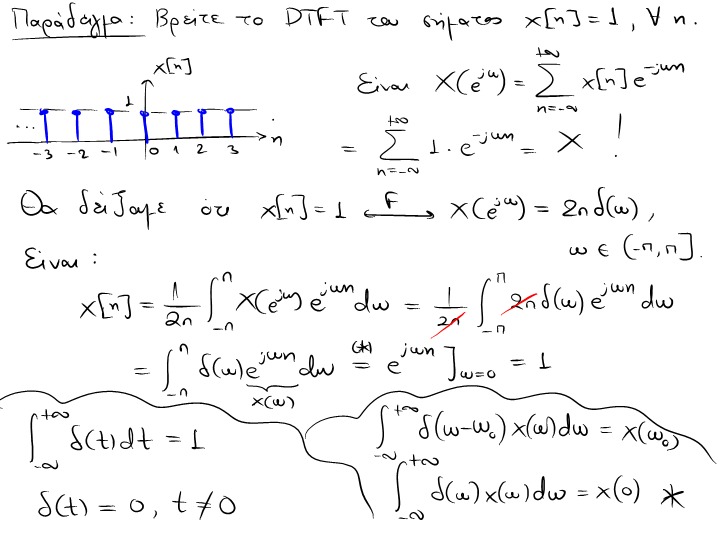 Παράδειγμα: Βρείτε το DTFT του σήματος x[n] = 1, ∀ n.
x[n]
1
...
-3 -2 -1 0 1 2 3 n
Είναι X(e^{jω}) = \sum_{n=-∞}^{+∞} x[n] e^{-jωn}
= \sum_{n=-∞}^{+∞} 1 · e^{-jωn} = X !
Θα δείξουμε ότι x[n] = 1 \overset{F}{⟷} X(e^{jω}) = 2π δ(ω),
ω ∈ (-π, π].
Είναι:
x[n] = \frac{1}{2π} \int_{-π}^{π} X(e^{jω}) e^{jωn} dω = \frac{1}{2π} \int_{-π}^{π} 2π δ(ω) e^{jωn} dω
= \int_{-π}^{π} δ(ω) e^{jωn} dω \overset{(*)}{=} e^{jωn} ]_{ω=0} = 1
x(ω)
\int_{-∞}^{+∞} δ(t) dt = 1
δ(t) = 0, t ≠ 0
\int_{-∞}^{+∞} δ(ω-ω_0) x(ω) dω = x(ω_0)
\int_{-∞}^{+∞} δ(ω) x(ω) dω = x(0) *